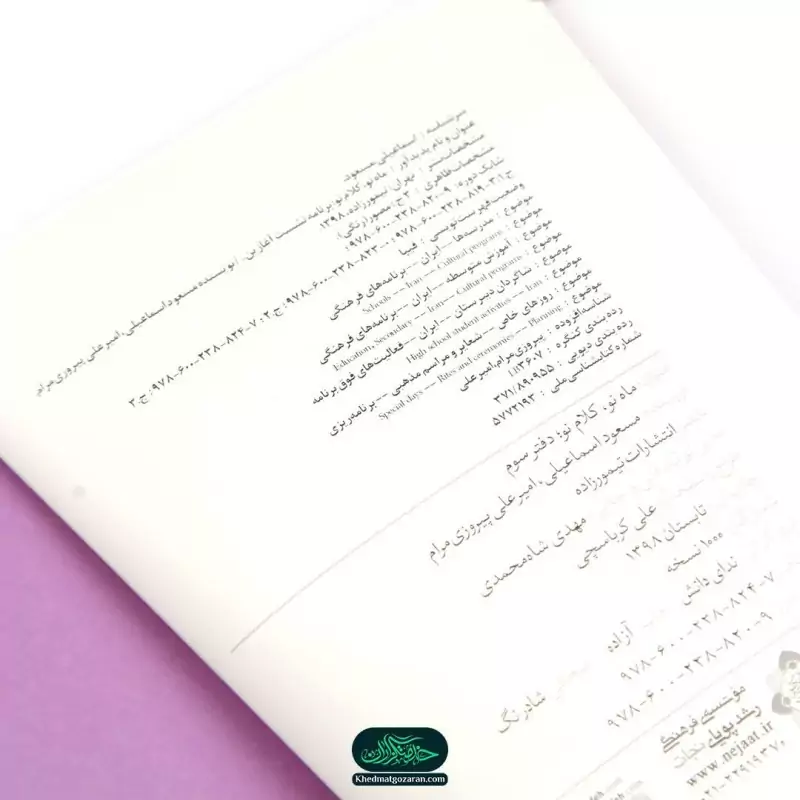 سرشناسه : اسماعیلی، مسعود،
عنوان و نام پدیدآور : ماه نو، کلام نو: برنامه نشست آغازین. / نویسنده مسعود اسماعیلی، امیرعلی پیروزی‌مرام
مشخصات نشر : تهران: تیمورزاده، ۱۳۹۸
مشخصات ظاهری : ۳ ج.: مصور (رنگی).
شابک دوره: ۹-۸۲۰-۲۳۸-۶۰۰-۹۷۸
ج.۱: ۳-۸۱۹-۲۳۸-۶۰۰-۹۷۸ ج.۲: ۰-۸۲۳-۲۳۸-۶۰۰-۹۷۸ ج.۳: ۷-۸۲۴-۲۳۸-۶۰۰-۹۷۸
وضعیت فهرست‌نویسی : فیپا
موضوع : مدرسه‌ها -- ایران -- برنامه‌های فرهنگی
موضوع : Schools -- Iran -- Cultural programs
موضوع : آموزش متوسطه -- ایران -- برنامه‌های فرهنگی
موضوع : Education, Secondary -- Iran -- Cultural programs
موضوع : شاگردان دبیرستان -- ایران -- فعالیت‌های فوق برنامه
موضوع : High school student activities -- Iran
موضوع : روزهای خاص -- شعایر و مراسم مذهبی -- برنامه‌ریزی
موضوع : Special days -- Rites and ceremonies -- Planning
شناسه افزوده : پیروزی‌مرام، امیرعلی
رده‌بندی کنگره : LB۳۶۰۷
رده‌بندی دیویی : ۳۷۱/۸۹۰۹۵۵
شماره کتابشناسی ملی : ۵۷۷۲۱۹۳
ماه نو، کلام نو؛ دفتر سوم
مسعود اسماعیلی، امیرعلی پیروزی‌مرام
انتشارات تیمورزاده
علی کرباسچی
مهدی شاه‌محمدی
تابستان ۱۳۹۸
۱۰۰۰ نسخه
ندای دانش
آزاده
شادرنگ
۹۷۸-۶۰۰-۲۳۸-۸۲۴-۷
۹۷۸-۶۰۰-۲۳۸-۸۲۰-۹
موسسه‌ی فرهنگی
رشد پویای نجات
www.nejaat.ir
۰۲۱-۲۲۹۱۹۳۷۰
خدمتگزاران
Khedmatgozaran.com